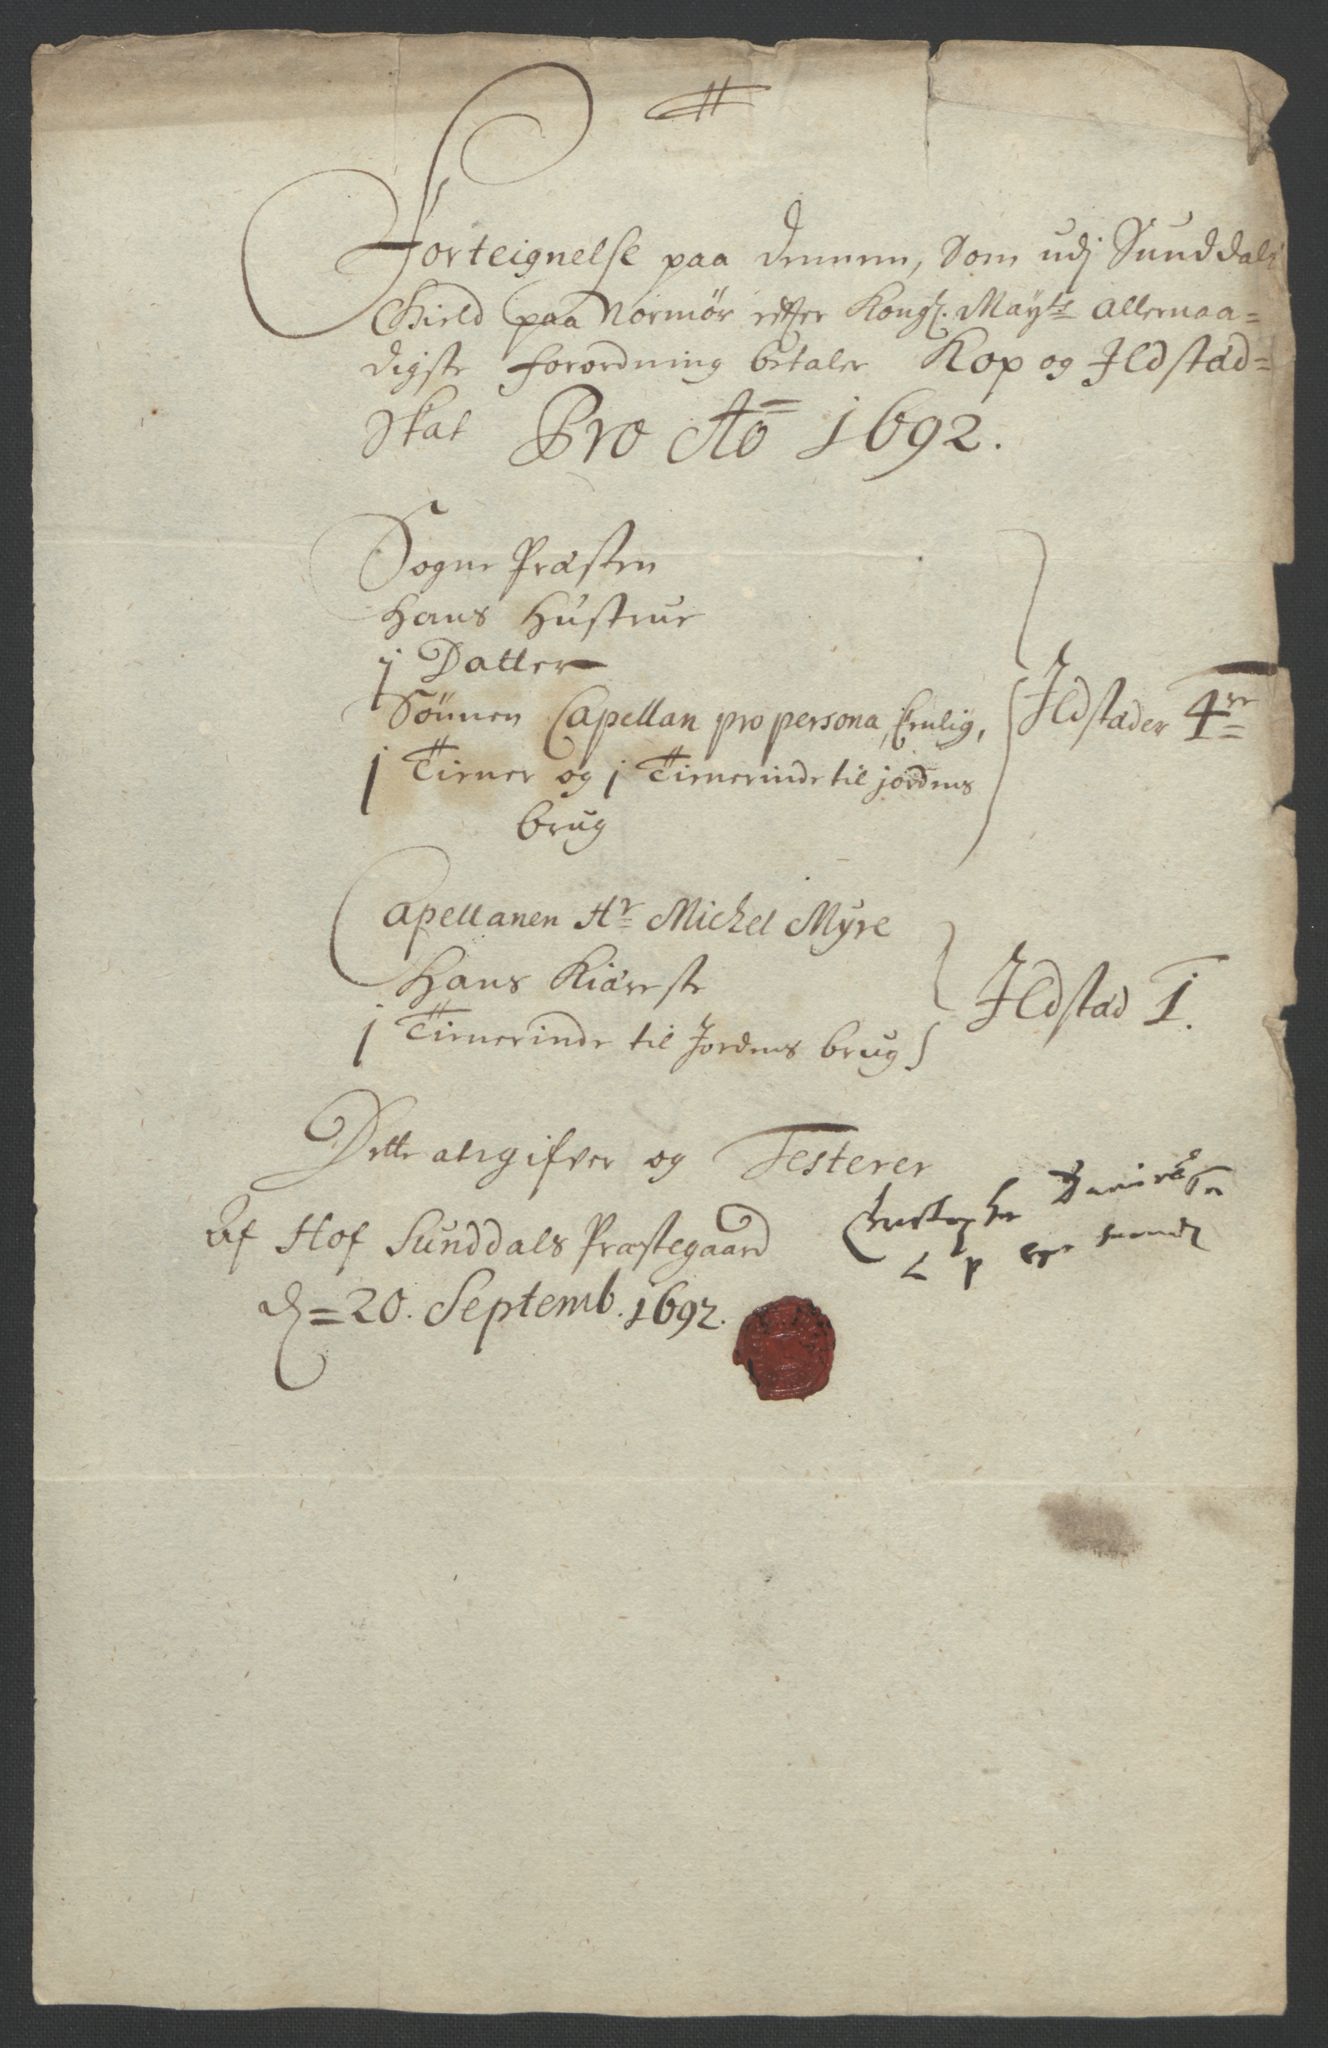 Forteignelse paa dennem, Som udj Sunddals
Gield paa Normør effter Kongl. Mayts allernaa=
digste forordning betaler Kop og Ildstad=
Skat Pro Ao 1692.
Sogne Præsten
Hans Hustrue
j Datter
Sönnen Capellan pro persona, Enlig,
j Tiener og j Tienerinde til jordens
brug
Ildstæder 4re
Capellanen Hr Michel Myre
Hans Kiæreste
j Tienerinde til Jordens brug
Ildstæd 1.
Dette angifver og Testerer
Af Hof Sunddals Præstegaard
d= 20. Septemb. 1692.
Christopher